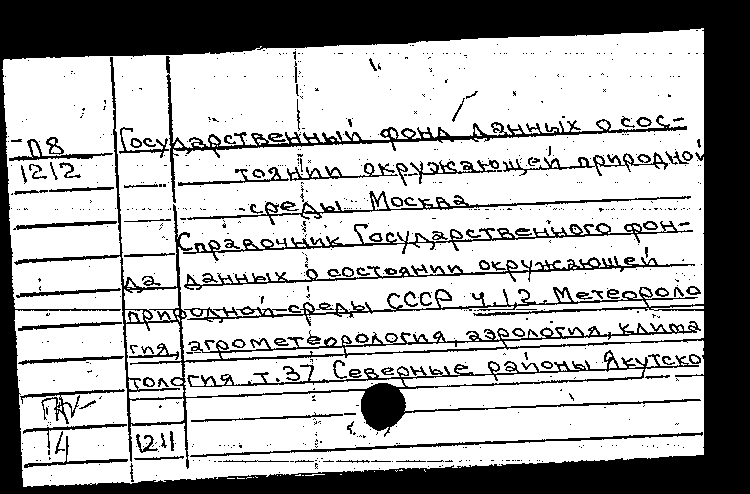 П8
1212
Государственный фонд данных о сос-
тоянии окружающей природной
среды. Москва
Справочник Государственного фон-
да данных о состоянии окружающей
природной среды СССР ч.1,2. Метеороло
гия, агрометеорология, аэрология, клима
тология. т.37. Северные районы Якутско
14 1211